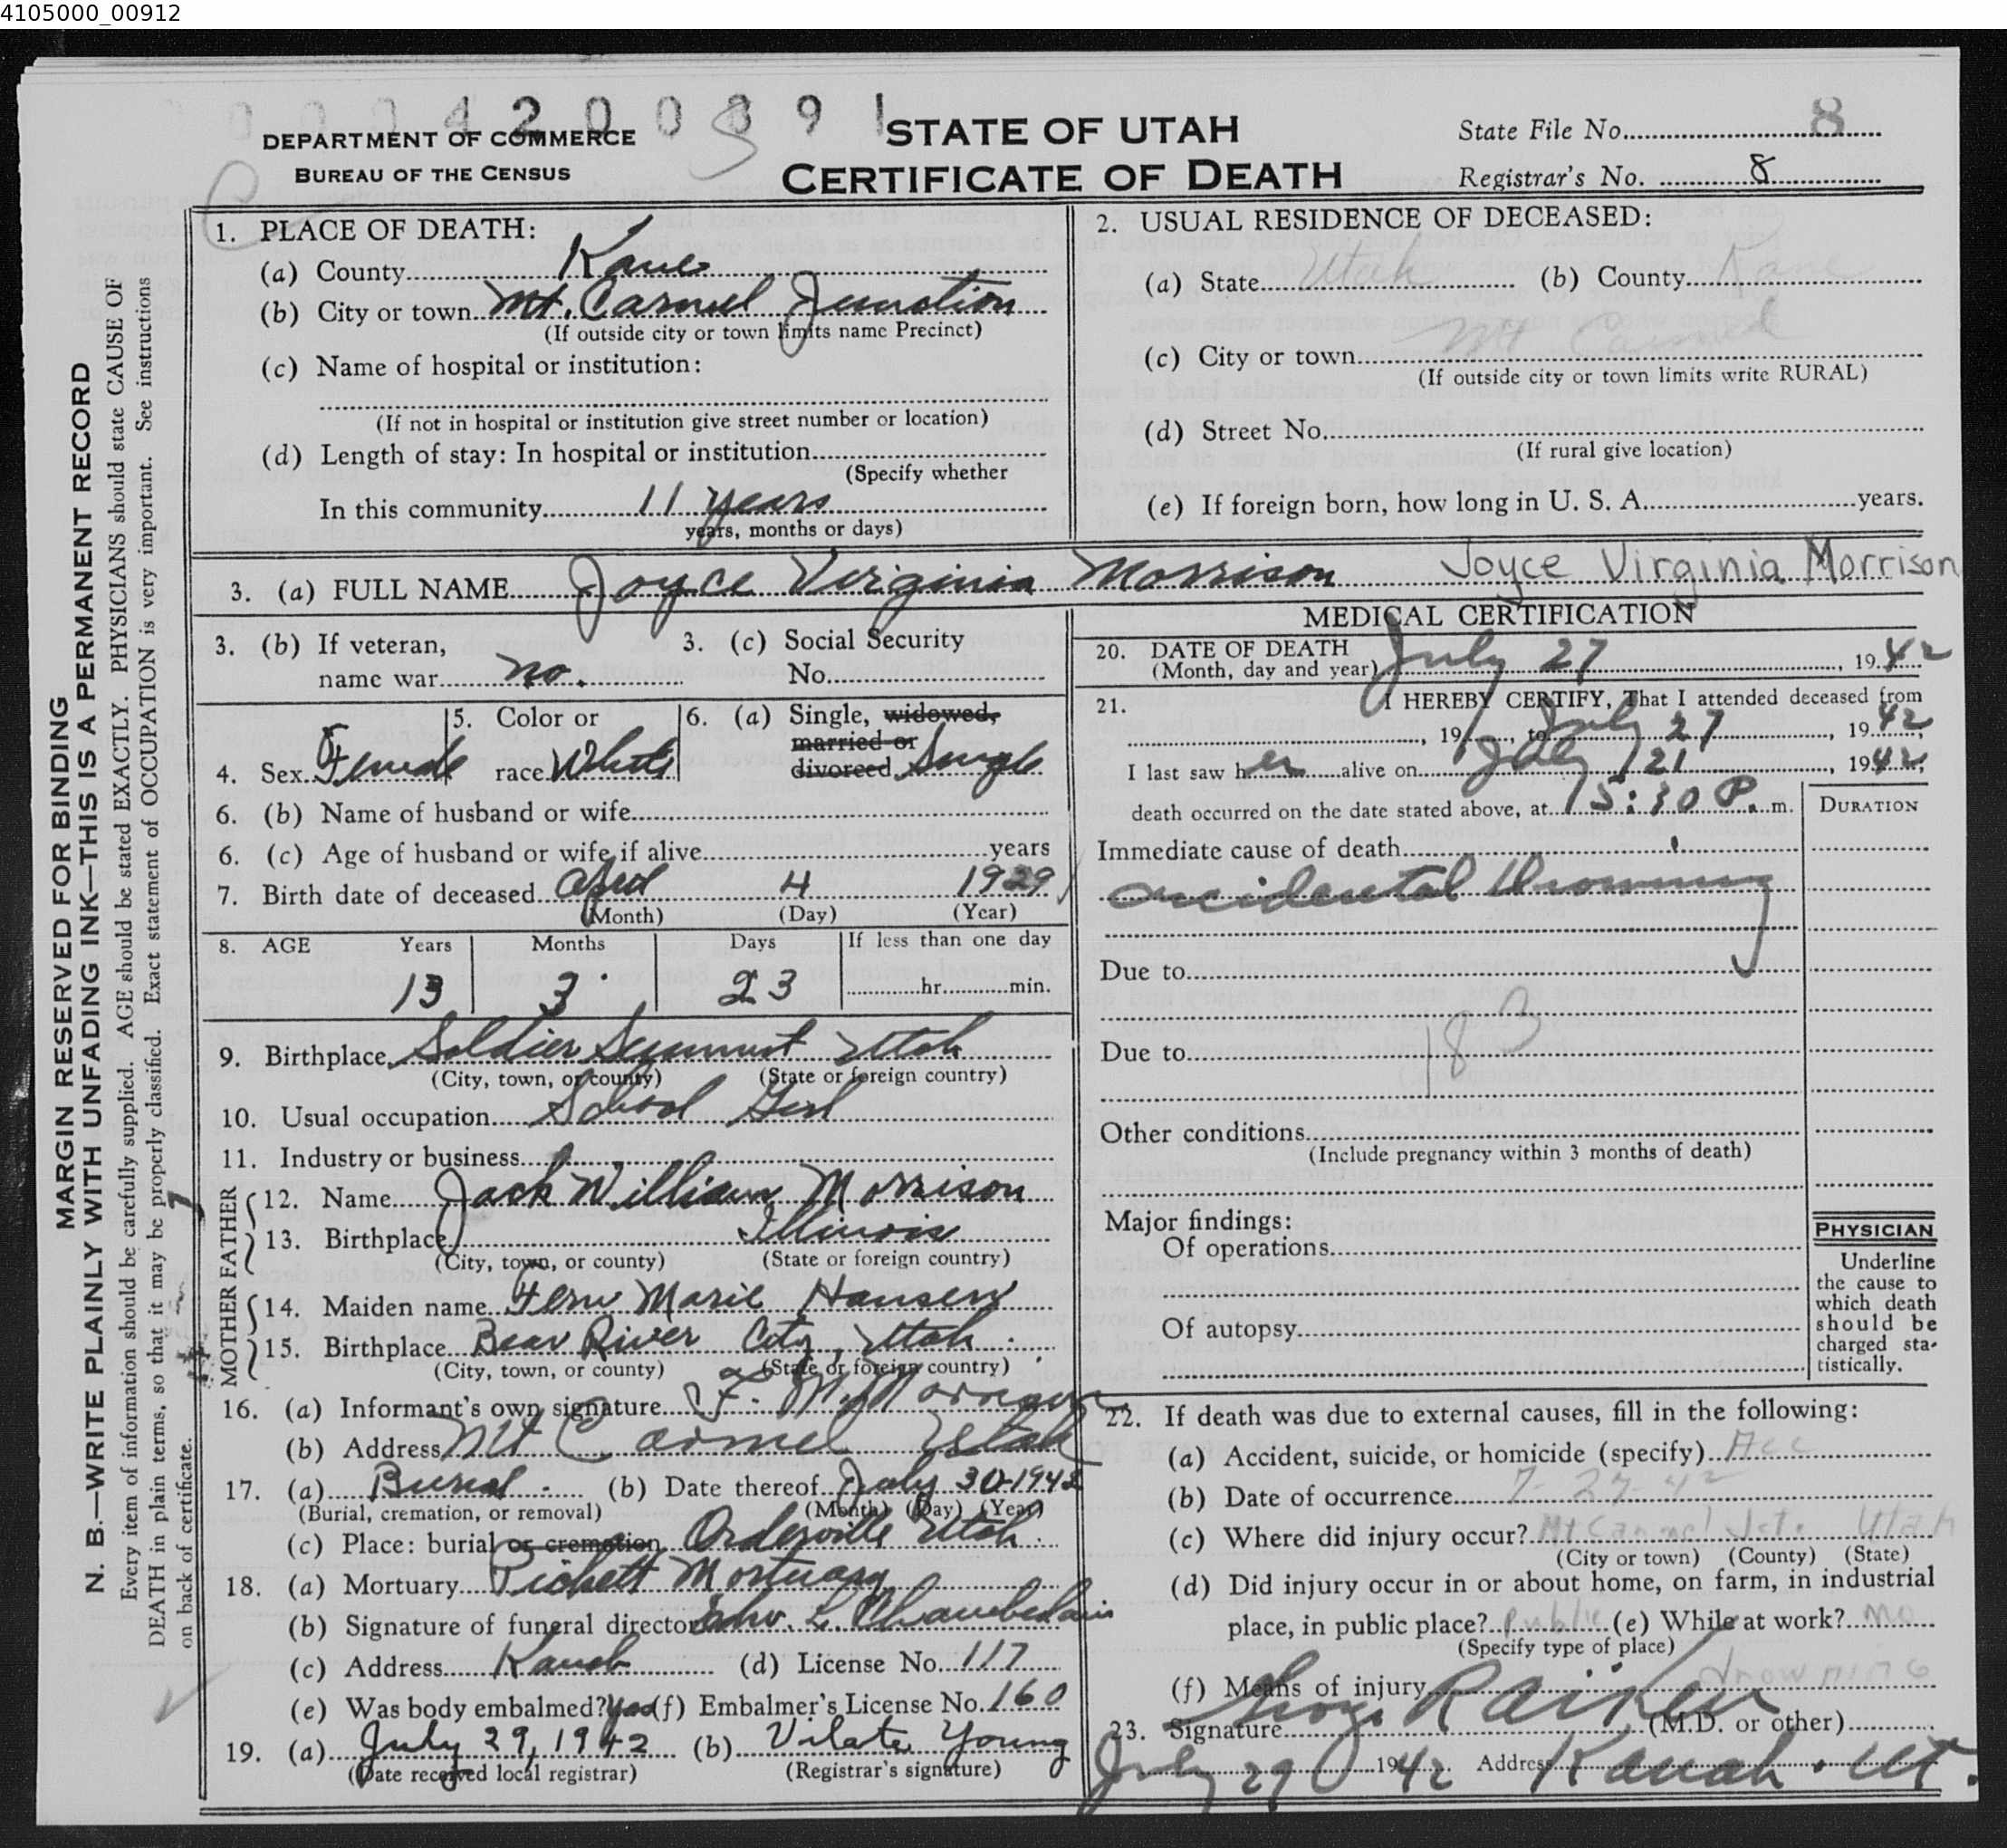 4105000_00912
0 0 0 4 2 0 0 8 9 1
DEPARTMENT OF COMMERCE
BUREAU OF THE CENSUS
STATE OF UTAH
CERTIFICATE OF DEATH
State File No. 8
Registrar's No. 8
MARGIN RESERVED FOR BINDING
N. B.—WRITE PLAINLY WITH UNFADING INK—THIS IS A PERMANENT RECORD
Every item of information should be carefully supplied. AGE should be stated EXACTLY. PHYSICIANS should state CAUSE OF
DEATH in plain terms, so that it may be properly classified. Exact statement of OCCUPATION is very important. See instructions
on back of certificate.
1. PLACE OF DEATH:
(a) County Kane
(b) City or town Mt. Carmel Junction
(If outside city or town limits name Precinct)
(c) Name of hospital or institution:
(If not in hospital or institution give street number or location)
(d) Length of stay: In hospital or institution
(Specify whether
In this community 11 years
years, months or days)
2. USUAL RESIDENCE OF DECEASED:
(a) State Utah (b) County Kane
(c) City or town Mt Carmel
(If outside city or town limits write RURAL)
(d) Street No.
(If rural give location)
(e) If foreign born, how long in U. S. A. years.
3. (a) FULL NAME Joyce Virginia Morrison Joyce Virginia Morrison
3. (b) If veteran,
name war no.
3. (c) Social Security
No.
4. Sex Female
5. Color or
race White
6. (a) Single, widowed,
married or
divorced Single
6. (b) Name of husband or wife
6. (c) Age of husband or wife if alive years
7. Birth date of deceased April 4 1929
(Month) (Day) (Year)
8. AGE Years Months Days If less than one day
13 3 23 hr. min.
9. Birthplace Soldier Summit Utah
(City, town, or county) (State or foreign country)
10. Usual occupation School Girl
11. Industry or business
FATHER
12. Name Jack William Morrison
13. Birthplace Illinois
(City, town, or county) (State or foreign country)
MOTHER
14. Maiden name Fern Marie Hansen
15. Birthplace Bear River City, Utah.
(City, town, or county) (State or foreign country)
16. (a) Informant's own signature F. M. Morrison
(b) Address Mt Carmel Utah
17. (a) Burial (b) Date thereof July 30-1942
(Burial, cremation, or removal) (Month) (Day) (Year)
(c) Place: burial or cremation Orderville Utah.
18. (a) Mortuary Pickett Mortuary
(b) Signature of funeral director L. Chamberlain
(c) Address Kanab (d) License No. 117
(e) Was body embalmed? Yes (f) Embalmer's License No. 160
19. (a) July 29, 1942 (b) Vilate Young
(Date received local registrar) (Registrar's signature)
MEDICAL CERTIFICATION
20. DATE OF DEATH
(Month, day and year) July 27, 1942
21. I HEREBY CERTIFY, That I attended deceased from
, 19 , to July 27, 1942,
I last saw her alive on July 21, 1942,
death occurred on the date stated above, at 5:30 P. m.
DURATION
Immediate cause of death
accidental drowning
Due to
183
Due to
Other conditions
(Include pregnancy within 3 months of death)
Major findings:
Of operations
Of autopsy
PHYSICIAN
Underline
the cause to
which death
should be
charged sta-
tistically.
22. If death was due to external causes, fill in the following:
(a) Accident, suicide, or homicide (specify) Acc
(b) Date of occurrence 7-27-42
(c) Where did injury occur? Mt Carmel Jct. Utah
(City or town) (County) (State)
(d) Did injury occur in or about home, on farm, in industrial
place, in public place? public (e) While at work? no
(Specify type of place)
(f) Means of injury drowning
23. Signature Geo. R Aiken (M.D. or other)
July 29 1942 Address Kanab. Ut.